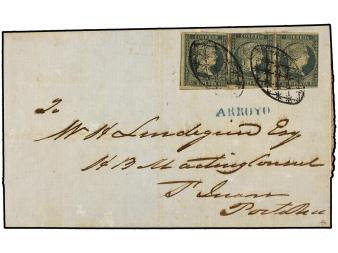 CORREOS CORREOS CORREOS
ARROYO
To
W. H. Lindegren Esq
H B M acting Consul
St Juan
Porto Rico